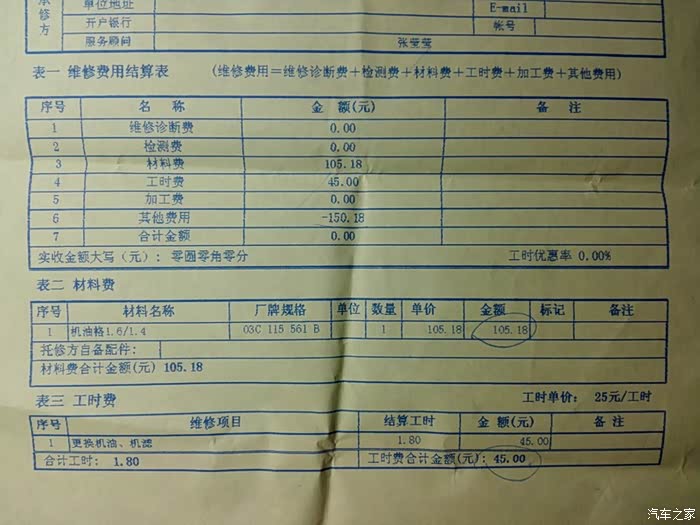 承修方
单位地址 E-mail
开户银行 帐号
服务顾问 张莹莹
表一 维修费用结算表 (维修费用＝维修诊断费＋检测费＋材料费＋工时费＋加工费＋其他费用)
序号 名 称 金 额(元) 备 注
1 维修诊断费 0.00
2 检测费 0.00
3 材料费 105.18
4 工时费 45.00
5 加工费 0.00
6 其他费用 -150.18
7 合计金额 0.00
实收金额大写（元）: 零圆零角零分 工时优惠率 0.00%
表二 材料费
序号 材料名称 厂牌规格 单位 数量 单价 金额 标记 备注
1 机油格1.6/1.4 03C 115 561 B 1 105.18 105.18
托修方自备配件:
材料费合计金额(元) 105.18
表三 工时费 工时单价: 25元/工时
序号 维修项目 结算工时 金 额(元) 备 注
1 更换机油、机滤 1.80 45.00
合计工时: 1.80 工时费合计金额(元): 45.00
汽车之家